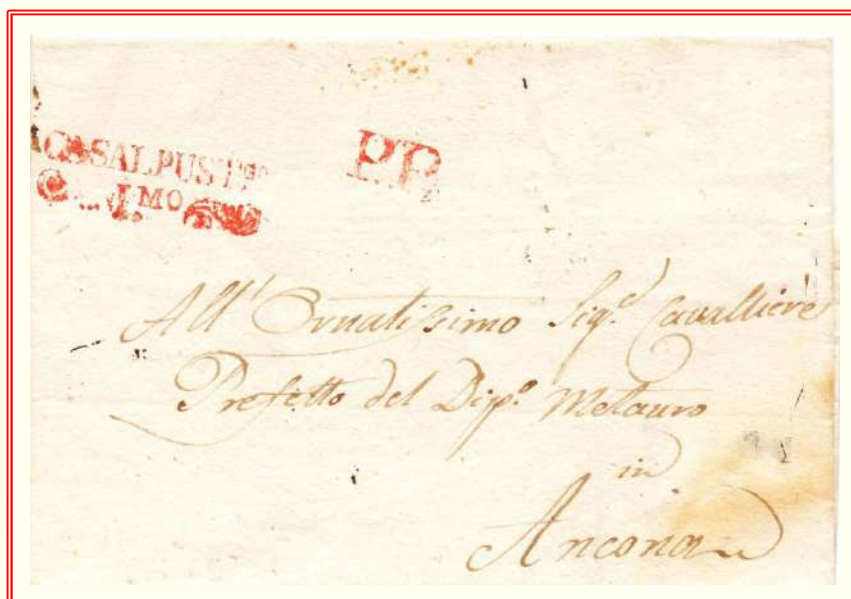 P.P.
All' Ornatissimo Sig.r Cavalliere
Prefetto del Dip.o Metauro
in
Ancona